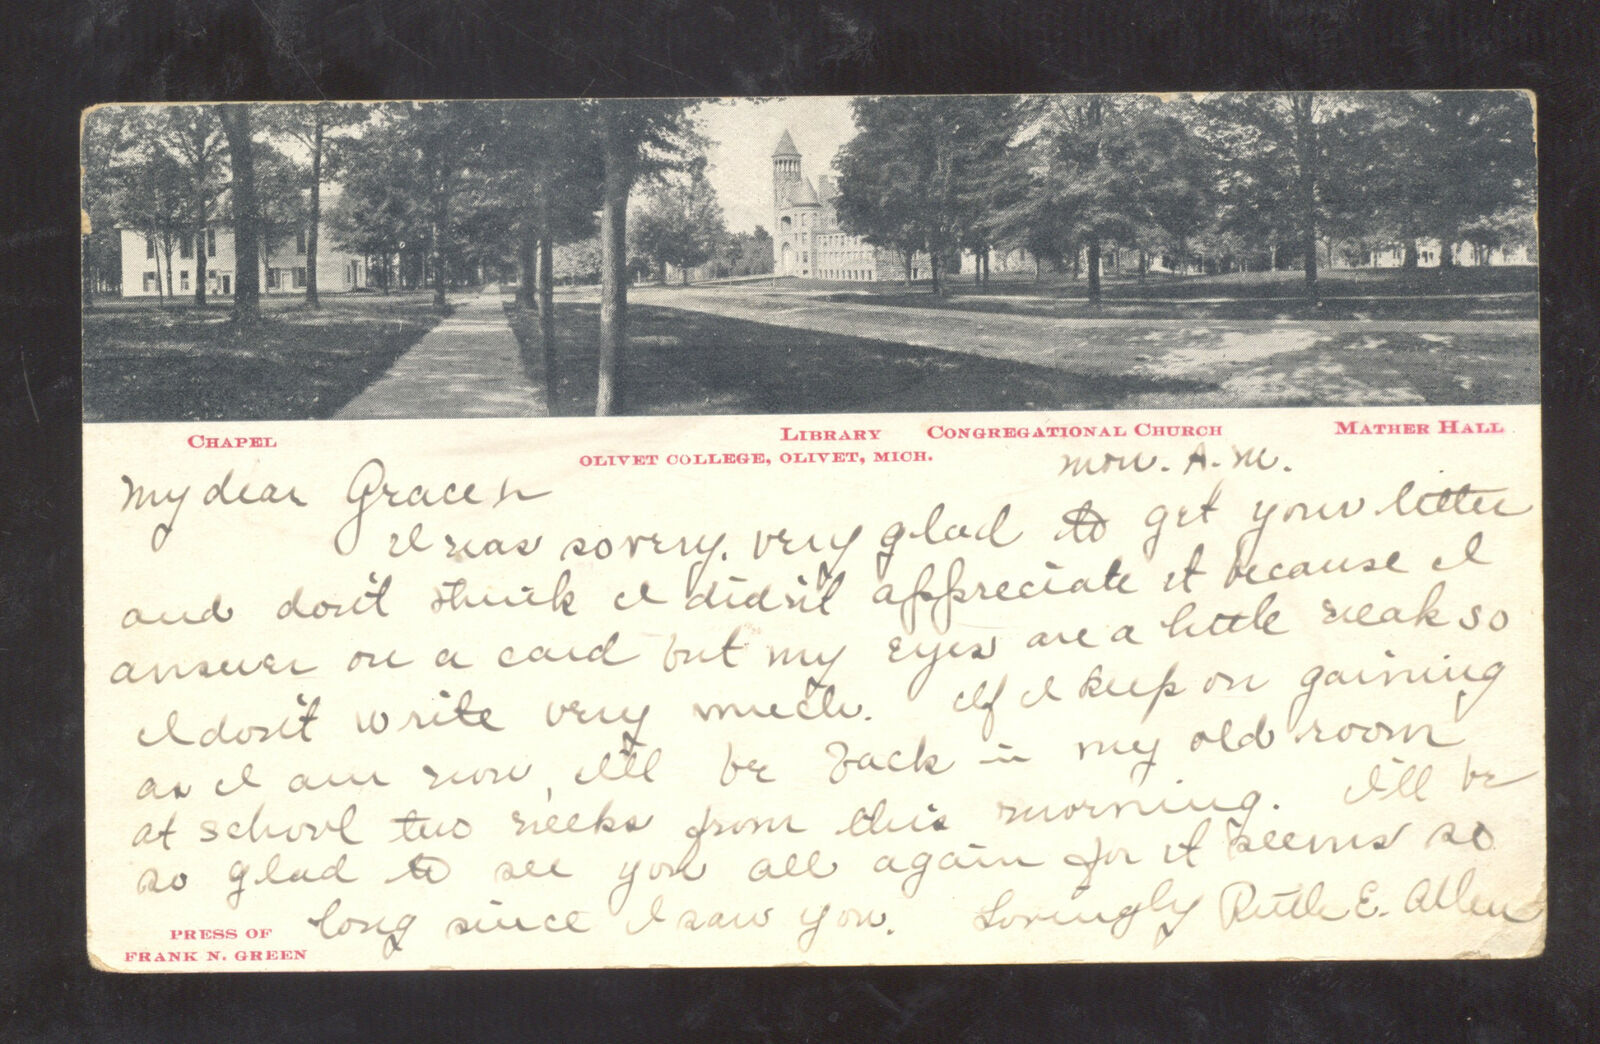 CHAPEL
LIBRARY
CONGREGATIONAL CHURCH
MATHER HALL
OLIVET COLLEGE, OLIVET, MICH.
Mon. A.M.
My dear Grace
I was so very, very glad to get your letter
and don't think I didn't appreciate it because I
answer on a card but my eyes are a little weak so
I don't write very much. If I keep on gaining
as I am now, I'll be back in my old room
at school two weeks from this morning. I'll be
so glad to see you all again for it seems so
long since I saw you. Lovingly Ruth E. Allen
PRESS OF
FRANK N. GREEN